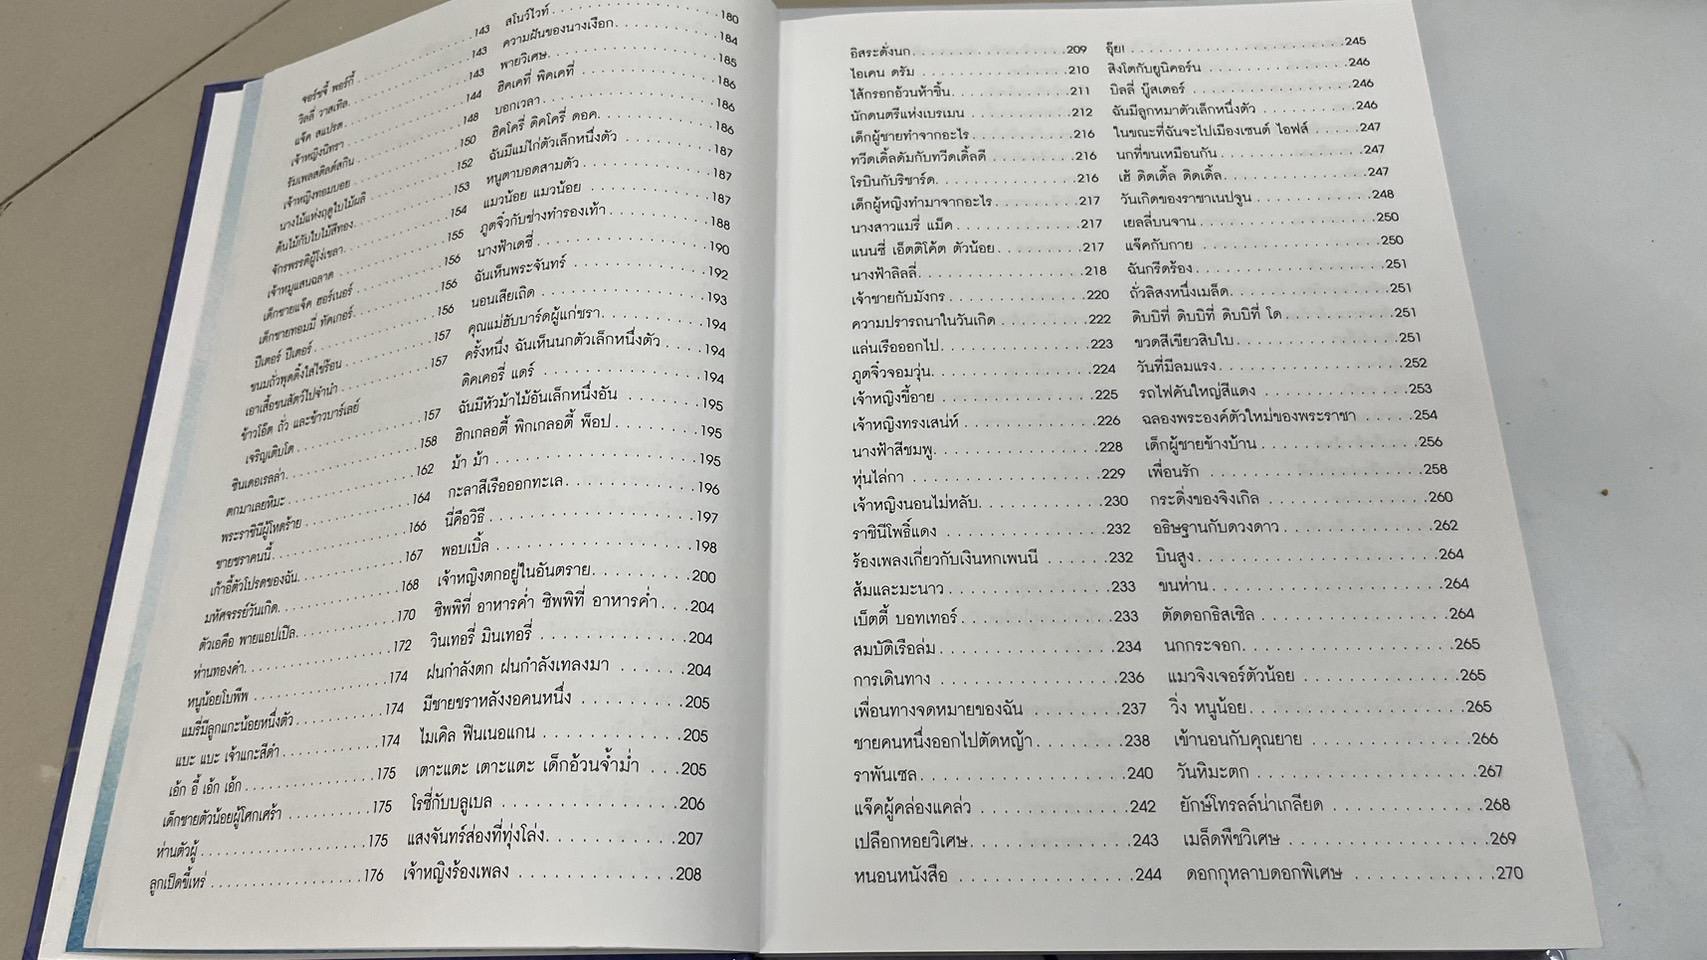 จอร์ชจี้ พอร์กี้ . . . 143
วิลลี่ วาสเทิล . . . 143
แจ็ค สแปรต . . . 143
เจ้าหญิงนิทรา . . . 144
รัมเพลสติลต์สกิน . . . 148
เจ้าหญิงทอมบอย . . . 150
นางไม้แห่งฤดูใบไม้ผลิ . . . 152
ต้นไม้กับใบไม้สีทอง . . . 153
จักรพรรดิผู้โง่เขลา . . . 154
เจ้าหมูแสนฉลาด . . . 155
เด็กชายแจ็ค ฮอร์เนอร์ . . . 156
เด็กชายทอมมี่ ทัคเกอร์ . . . 156
ปีเตอร์ ปีเตอร์ . . . 156
ขนมถั่วพุดดิ้งใส่ไข่ร้อน . . . 157
เอาเสื้อขนสัตว์ไปจำนำ . . . 157
ข้าวโอ๊ต ถั่ว และข้าวบาร์เลย์
เจริญเติบโต . . . 157
ซินเดอเรลล่า . . . 158
ตกมาเลยหิมะ . . . 162
พระราชินีผู้โหดร้าย . . . 164
ชายชราคนนี้ . . . 166
เก้าอี้ตัวโปรดของฉัน . . . 167
มหัศจรรย์วันเกิด . . . 168
ตัวเอคือ พายแอปเปิล . . . 170
ห่านทองคำ . . . 172
หนูน้อยโบพีพ . . . 174
แมรี่มีลูกแกะน้อยหนึ่งตัว . . . 174
แบะ แบะ เจ้าแกะสีดำ . . . 174
เอ้ก อี้ เอ้ก เอ้ก . . . 175
เด็กชายตัวน้อยผู้โศกเศร้า . . . 175
ห่านตัวผู้ . . . 175
ลูกเป็ดขี้เหร่ . . . 176
สโนว์ไวท์ . . . 180
ความฝันของนางเงือก . . . 184
พายวิเศษ . . . 185
ฮิคเคที่ พิคเคที่ . . . 186
บอกเวลา . . . 186
ฮิคโครี่ ดิคโครี่ ดอค . . . 186
ฉันมีแม่ไก่ตัวเล็กหนึ่งตัว . . . 187
หนูตาบอดสามตัว . . . 187
แมวน้อย แมวน้อย . . . 187
ภูตจิ๋วกับช่างทำรองเท้า . . . 188
นางฟ้าเดซี่ . . . 190
ฉันเห็นพระจันทร์ . . . 192
นอนเสียเถิด . . . 193
คุณแม่ฮับบาร์ดผู้แก่ชรา . . . 194
ครั้งหนึ่ง ฉันเห็นนกตัวเล็กหนึ่งตัว . . . 194
ดิคเคอรี่ แดร์ . . . 194
ฉันมีหัวม้าไม้อันเล็กหนึ่งอัน . . . 195
ฮิกเกลอตี้ พิกเกลอตี้ พ็อป . . . 195
ม้า ม้า . . . 195
กะลาสีเรือออกทะเล . . . 196
นี่คือวิธี . . . 197
พอบเบิ้ล . . . 198
เจ้าหญิงตกอยู่ในอันตราย . . . 200
ซิพพิที่ อาหารค่ำ ซิพพิที่ อาหารค่ำ . . . 204
วินเทอรี่ มินเทอรี่ . . . 204
ฝนกำลังตก ฝนกำลังเทลงมา . . . 204
มีชายชราหลังงอคนหนึ่ง . . . 205
ไมเคิล ฟินเนอแกน . . . 205
เตาะแตะ เตาะแตะ เด็กอ้วนจ้ำม่ำ . . . 205
โรซี่กับบลูเบล . . . 206
แสงจันทร์ส่องที่ทุ่งโล่ง . . . 207
เจ้าหญิงร้องเพลง . . . 208
อิสระดั่งนก . . . 209
ไอเคน ดรัม . . . 210
ไส้กรอกอ้วนห้าชิ้น . . . 211
นักดนตรีแห่งเบรเมน . . . 212
เด็กผู้ชายทำจากอะไร . . . 216
ทวีดเดิ้ลดัมกับทวีดเดิ้ลดี . . . 216
โรบินกับริชาร์ด . . . 216
เด็กผู้หญิงทำมาจากอะไร . . . 217
นางสาวแมรี่ แม็ค . . . 217
แนนซี่ เอ็ตติโค้ต ตัวน้อย . . . 217
นางฟ้าลิลลี่ . . . 218
เจ้าชายกับมังกร . . . 220
ความปรารถนาในวันเกิด . . . 222
แล่นเรือออกไป . . . 223
ภูตจิ๋วจอมวุ่น . . . 224
เจ้าหญิงขี้อาย . . . 225
เจ้าหญิงทรงเสน่ห์ . . . 226
นางฟ้าสีชมพู . . . 228
หุ่นไล่กา . . . 229
เจ้าหญิงนอนไม่หลับ . . . 230
ราชินีโพธิ์แดง . . . 232
ร้องเพลงเกี่ยวกับเงินหกเพนนี . . . 232
ส้มและมะนาว . . . 233
เบ็ตตี้ บอทเทอร์ . . . 233
สมบัติเรือล่ม . . . 234
การเดินทาง . . . 236
เพื่อนทางจดหมายของฉัน . . . 237
ชายคนหนึ่งออกไปตัดหญ้า . . . 238
ราพันเซล . . . 240
แจ็คผู้คล่องแคล่ว . . . 242
เปลือกหอยวิเศษ . . . 243
หนอนหนังสือ . . . 244
อุ๊ย! . . . 245
สิงโตกับยูนิคอร์น . . . 246
บิลลี่ บู๊สเตอร์ . . . 246
ฉันมีลูกหมาตัวเล็กหนึ่งตัว . . . 246
ในขณะที่ฉันจะไปเมืองเซนต์ ไอฟส์ . . . 247
นกที่ขนเหมือนกัน . . . 247
เฮ้ ดิดเดิ้ล ดิดเดิ้ล . . . 247
วันเกิดของราชาเนปจูน . . . 248
เยลลี่บนจาน . . . 250
แจ็คกับกาย . . . 250
ฉันกรีดร้อง . . . 251
ถั่วลิสงหนึ่งเมล็ด . . . 251
ดิบบิที่ ดิบบิที่ ดิบบิที่ โด . . . 251
ขวดสีเขียวสิบใบ . . . 251
วันที่มีลมแรง . . . 252
รถไฟคันใหญ่สีแดง . . . 253
ฉลองพระองค์ตัวใหม่ของพระราชา . . . 254
เด็กผู้ชายข้างบ้าน . . . 256
เพื่อนรัก . . . 258
กระดิ่งของจิงเกิล . . . 260
อธิษฐานกับดวงดาว . . . 262
บินสูง . . . 264
ขนห่าน . . . 264
ตัดดอกธิสเซิล . . . 264
นกกระจอก . . . 265
แมวจิงเจอร์ตัวน้อย . . . 265
วิ่ง หนูน้อย . . . 265
เข้านอนกับคุณยาย . . . 266
วันหิมะตก . . . 267
ยักษ์โทรลล์น่าเกลียด . . . 268
เมล็ดพืชวิเศษ . . . 269
ดอกกุหลาบดอกพิเศษ . . . 270